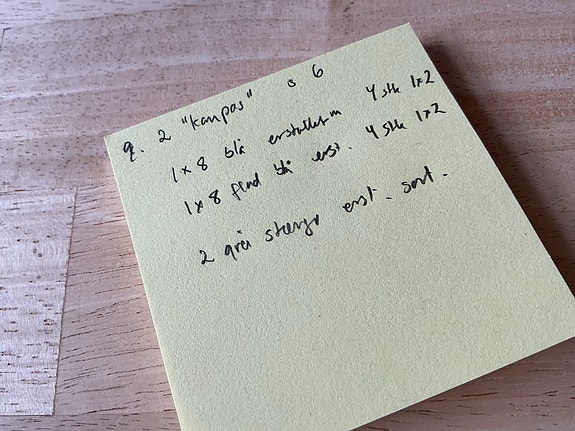 9. 2 "kampas" s 6
1x8 blå erstattet m 4 stk 1x2
1x8 flad blå erst. 4 stk 1x2
2 grå stænger erst. sort.